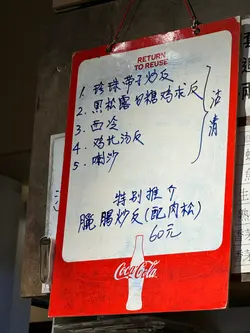 RETURN
TO REUSE
1. 珍珠带子炒反
2. 黑松露勺糖鸡求反
3. 西冷
4. 鸡扎汤反
5. 喇沙
沽清
特别推介
臘腸炒反(配肉松)
60元
Coca-Cola